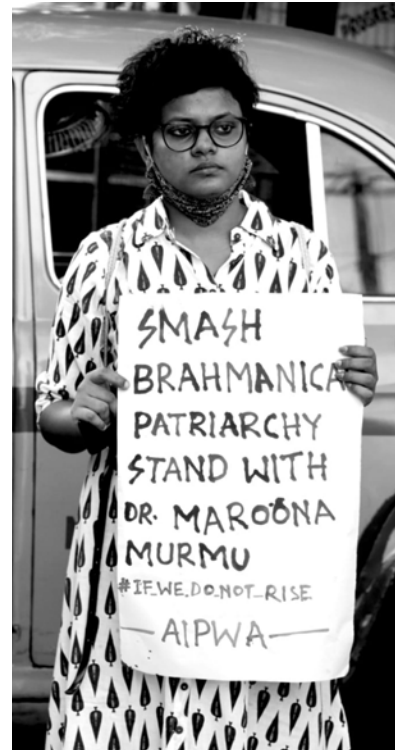 PROGRES
SMASH
BRAHMANICA
PATRIARCHY
STAND WITH
DR. MAROONA
MURMU
#IF_WE_DO_NOT_RISE
—AIPWA—